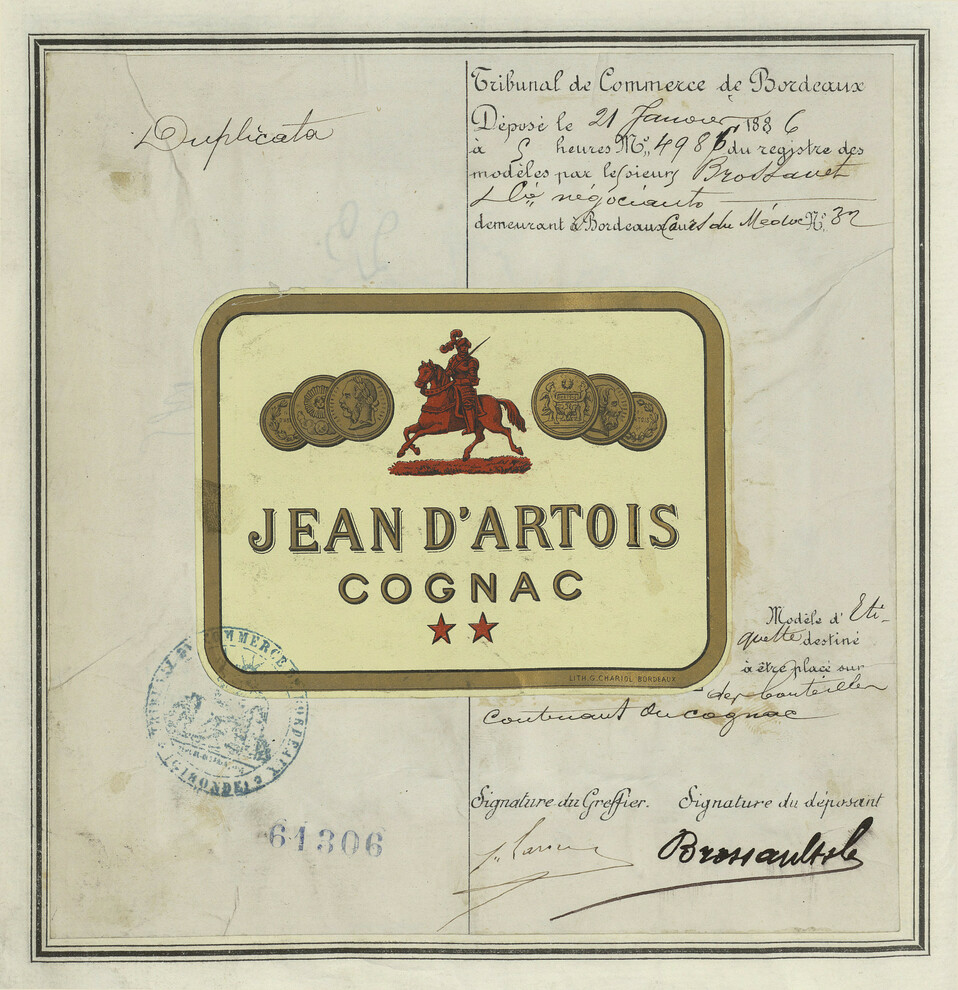 Duplicata
Tribunal de Commerce de Bordeaux
Déposé le 21 Janvier 1886
à 5 heures Mº,, 498 du registre des
modèles par le sieurs
& Cie négociants
demeurant à Bordeaux Cours du Médoc Nº. 32
JEAN D'ARTOIS
COGNAC
LITH. G. CHARIOL BORDEAUX
Modèle d' Eti-
quette destiné
à être placé sur
des bouteilles
contenant du cognac
TRIBUNAL DE COMMERCE DE BORDEAUX
(GIRONDE)
Signature du Greffier. Signature du déposant
61306